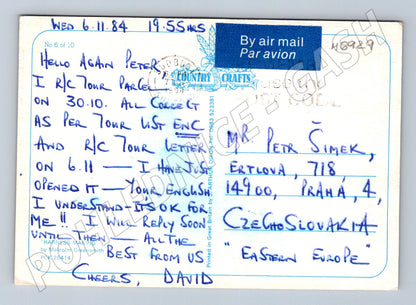 WED 6.11.84 19.55HRS
No 6 of 10
HELLO AGAIN PETER
I R/C YOUR PARCEL
ON 30.10. ALL CORRECT
AS PER YOUR LIST ENC
AND R/C YOUR LETTER
ON 6.11 — I HAVE JUST
OPENED IT — YOUR ENGLISH
I UNDERSTAND—ITS OK FOR
ME!! I WILL REPLY SOON
UNTIL THEN — ALL THE
BEST FROM US
CHEERS, DAVID
COUNTRY CRAFTS
By air mail
Par avion
46929
MR. PETR ŠIMEK,
ERTLOVA, 718,
14900, PRAHA, 4,
CZECHOSLOVAKIA
"EASTERN EUROPE"